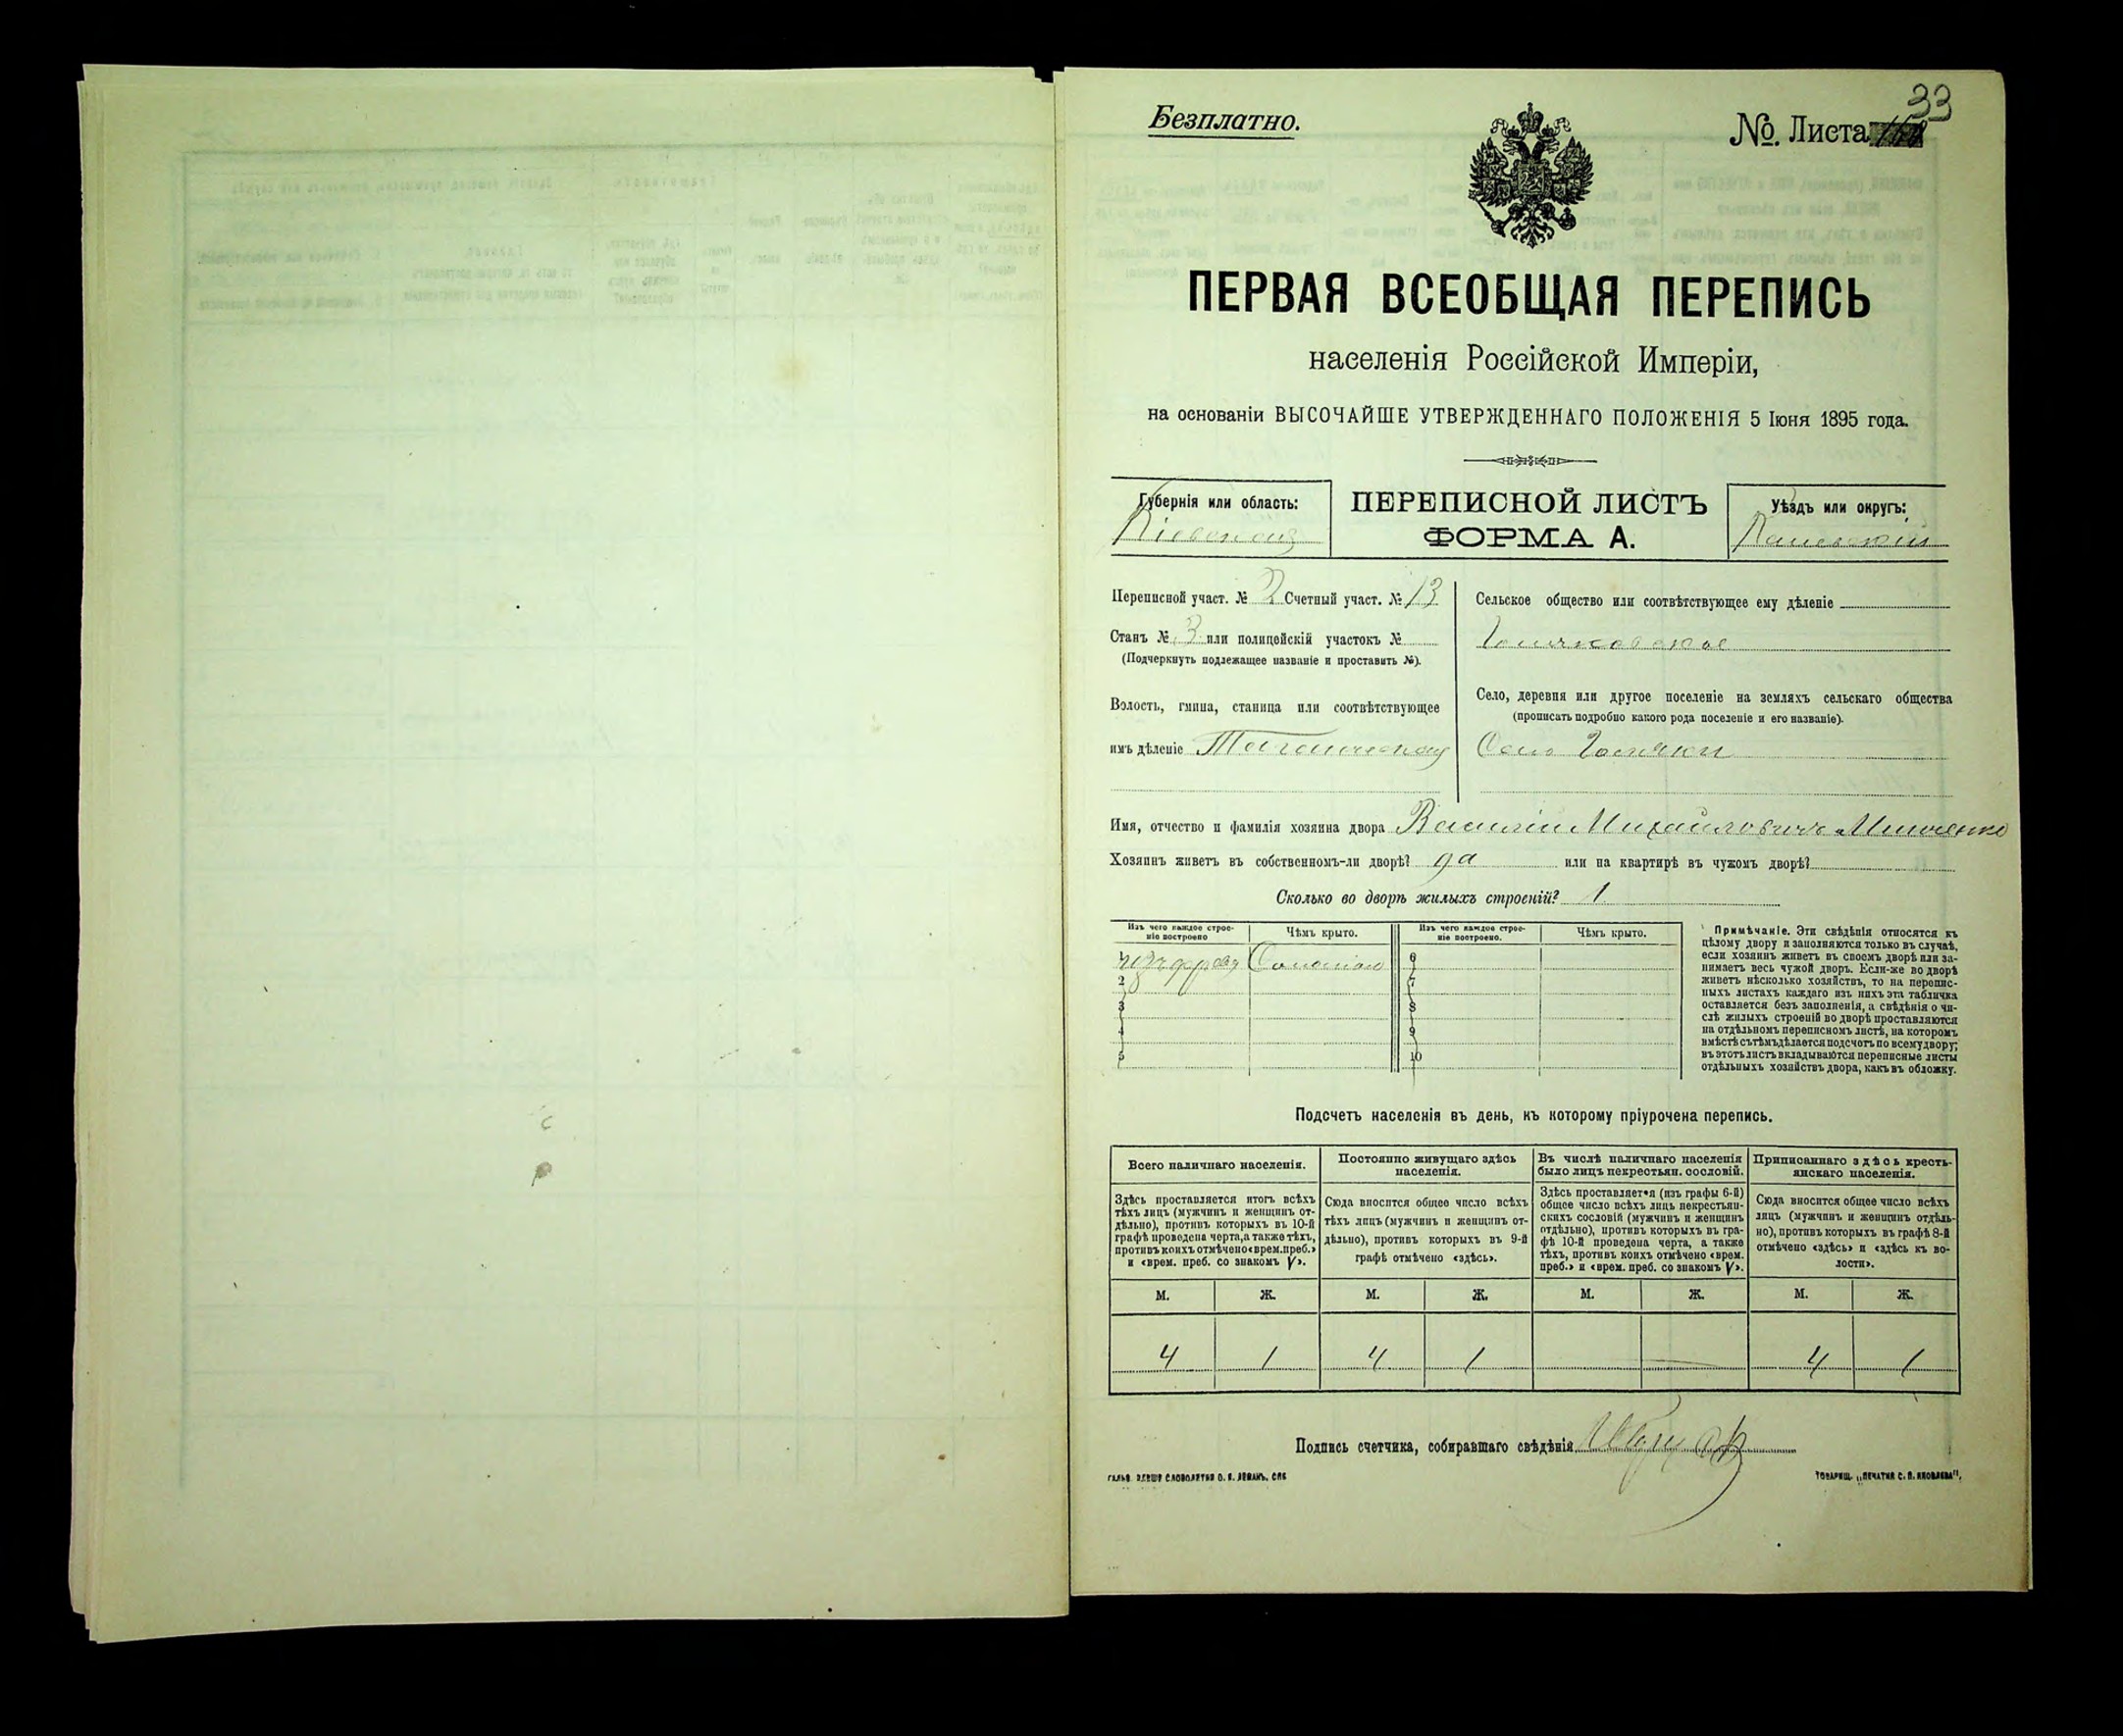 33
Безплатно.
№. Листа
ПЕРВАЯ ВСЕОБЩАЯ ПЕРЕПИСЬ
населенія Россійской Имперіи,
на основаніи ВЫСОЧАЙШЕ УТВЕРЖДЕННАГО ПОЛОЖЕНІЯ 5 Іюня 1895 года.
Губернія или область:
Кіевская
ПЕРЕПИСНОЙ ЛИСТЪ
ФОРМА А.
Уѣздъ или округъ:
Каневскій
Переписной участ. № 2 Счетный участ. № 13
Станъ № 3 или полицейскій участокъ №
(Подчеркнуть подлежащее названіе и проставить №).
Волость, гмина, станица или соотвѣтствующее
имъ дѣленіе Таганчская
Сельское общество или соотвѣтствующее ему дѣленіе
Село, деревня или другое поселеніе на земляхъ сельскаго общества
(прописать подробно какого рода поселеніе и его названіе).
Село
Имя, отчество и фамилія хозяина двора Василій Михайловичъ
Хозяинъ живетъ въ собственномъ-ли дворѣ? да или на квартирѣ въ чужомъ дворѣ?
Сколько во дворѣ жилыхъ строеній? 1
Изъ чего каждое строе-
ніе построено
Чѣмъ крыто.
Изъ чего каждое строе-
ніе построено.
Чѣмъ крыто.
изъ дерева Соломою
6
2 7
3 8
4 9
5 10
Примѣчаніе. Эти свѣдѣнія относятся къ
цѣлому двору и заполняются только въ случаѣ,
если хозяинъ живетъ въ своемъ дворѣ или за-
нимаетъ весь чужой дворъ. Если-же во дворѣ
живетъ нѣсколько хозяйствъ, то на перепис-
ныхъ листахъ каждаго изъ нихъ эта табличка
оставляется безъ заполненія, а свѣдѣнія о чи-
слѣ жилыхъ строеній во дворѣ проставляются
на отдѣльномъ переписномъ листѣ, на которомъ
вмѣстѣ съ тѣмъ дѣлается подсчетъ по всему двору;
въ этотъ листъ вкладываются переписные листы
отдѣльныхъ хозяйствъ двора, какъ въ обложку.
Подсчетъ населенія въ день, къ которому пріурочена перепись.
Всего наличнаго населенія.
Здѣсь проставляется итогъ всѣхъ
тѣхъ лицъ (мужчинъ и женщинъ от-
дѣльно), противъ которыхъ въ 10-й
графѣ проведена черта, а также тѣхъ,
противъ коихъ отмѣчено «врем. преб.»
и «врем. преб. со знакомъ V».
Постоянно живущаго здѣсь
населенія.
Сюда вносится общее число всѣхъ
тѣхъ лицъ (мужчинъ и женщинъ от-
дѣльно), противъ которыхъ въ 9-й
графѣ отмѣчено «здѣсь».
Въ числѣ наличнаго населенія
было лицъ некрестьян. сословій.
Здѣсь проставляется (изъ графы 6-й)
общее число всѣхъ лицъ некрестьян-
скихъ сословій (мужчинъ и женщинъ
отдѣльно), противъ которыхъ въ гра-
фѣ 10-й проведена черта, а также
тѣхъ, противъ коихъ отмѣчено «врем.
преб.» и «врем. преб. со знакомъ V».
Приписаннаго здѣсь кресть-
янскаго населенія.
Сюда вносится общее число всѣхъ
лицъ (мужчинъ и женщинъ отдѣль-
но), противъ которыхъ въ графѣ 8-й
отмѣчено «здѣсь» и «здѣсь къ во-
лости».
М. Ж. М. Ж. М. Ж. М. Ж.
4 1 4 1 — 4 1
Подпись счетчика, собиравшаго свѣдѣнія
ТОВАРИЩ. „ПЕЧАТНЯ С. П. ЯКОВЛЕВА“.